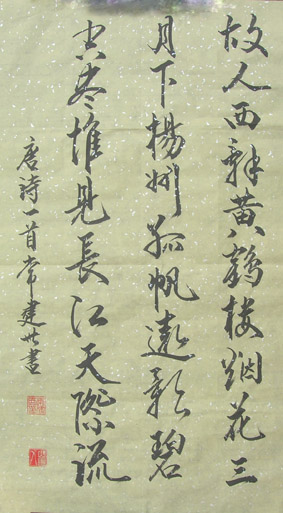 故人西辞黄鶴楼烟花三
月下楊州孤帆遠影碧
空尽惟見長江天際流
唐詩一首常建世書